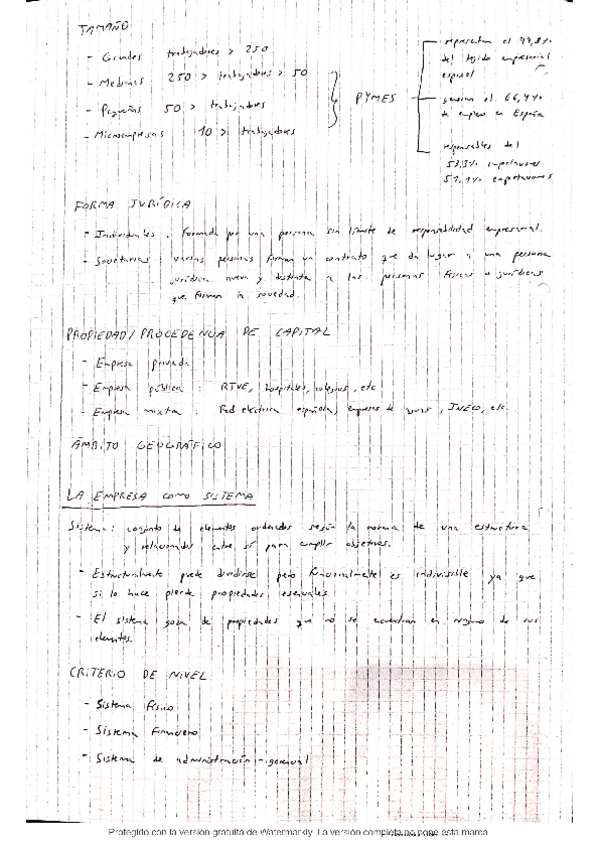 TAMAÑO
- Grandes trabajadores > 250
- Medianas 250 > trabajadores > 50
- Pequeñas 50 > trabajadores
- Microempresas 10 > trabajadores
PYMES
representan el 99,8%
del tejido empresarial
español
generan el 66,4%
de empleo en España
responsables del
53,3% importaciones
51,1% exportaciones
FORMA JURÍDICA
- Individuales : formada por una persona sin límite de responsabilidad empresarial.
- Societarias : varias personas firman un contrato que da lugar a una persona
jurídica nueva y distinta a las personas físicas o jurídicas
que forman la sociedad.
PROPIEDAD/PROCEDENCIA DE CAPITAL
- Empresa privada
- Empresa pública : RTVE, hospitales, colegios, etc
- Empresa mixta : Red eléctrica española, empresas de aguas, INECO, etc.
ÁMBITO GEOGRÁFICO
LA EMPRESA COMO SISTEMA
Sistema: conjunto de elementos ordenados según la norma de una estructura
y relacionados entre sí para cumplir objetivos.
- Estructuralmente puede dividirse pero funcionalmente es indivisible ya que
si lo hace pierde propiedades esenciales
- El sistema goza de propiedades que no se encuentran en ninguno de sus
elementos.
CRITERIO DE NIVEL
- Sistema físico
- Sistema financiero
- Sistema de administración-gerencial
Protegido con la versión gratuita de Watermarkly. La versión completa no pone esta marca